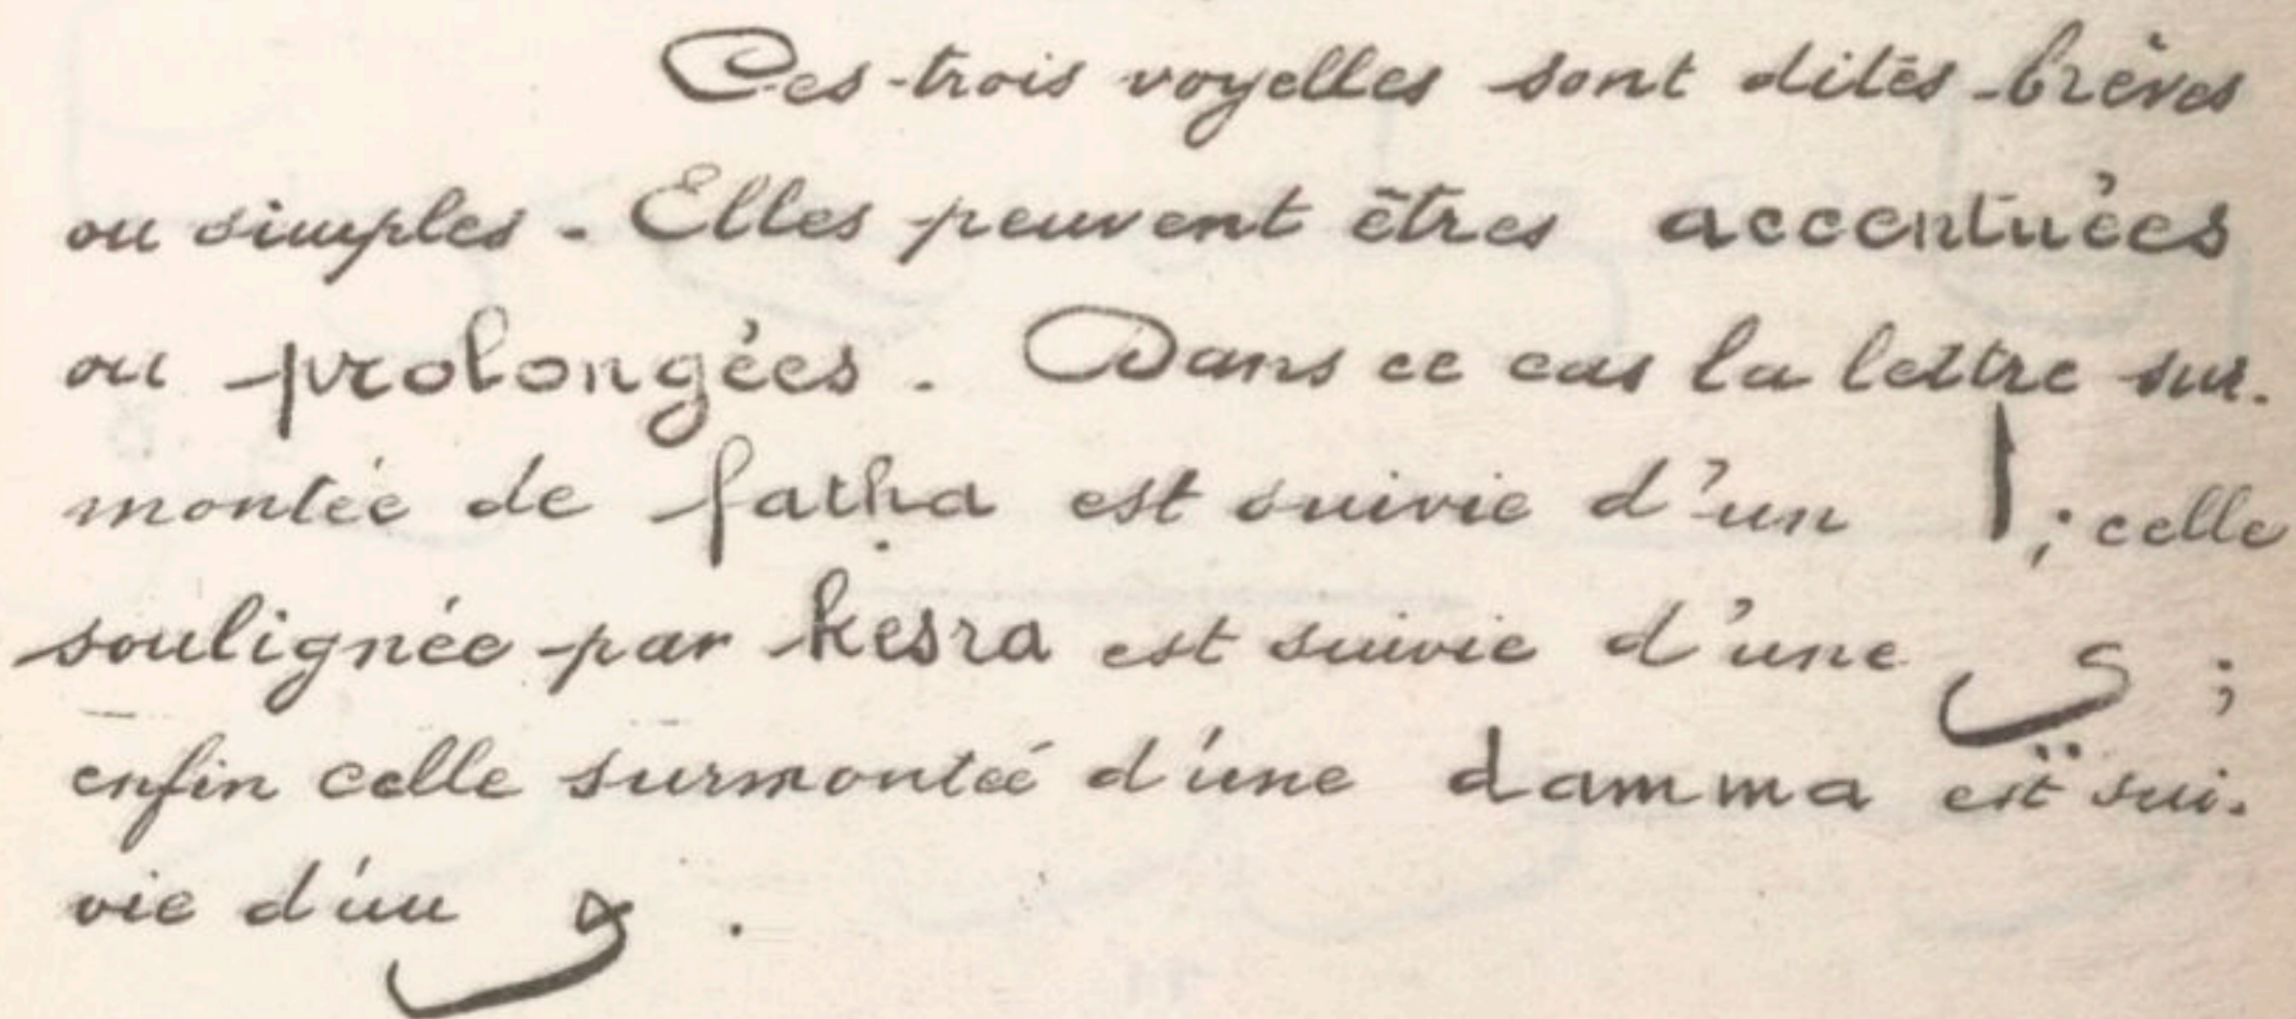 Ces trois voyelles sont dites brèves
ou simples. Elles peuvent êtres accentuées
ou prolongées. Dans ce cas la lettre sur-
montée de fatḥa est suivie d'un ا ; celle
soulignée par kesra est suivie d'une ي ;
enfin celle surmontée d'une damma est sui-
vie d'un و .